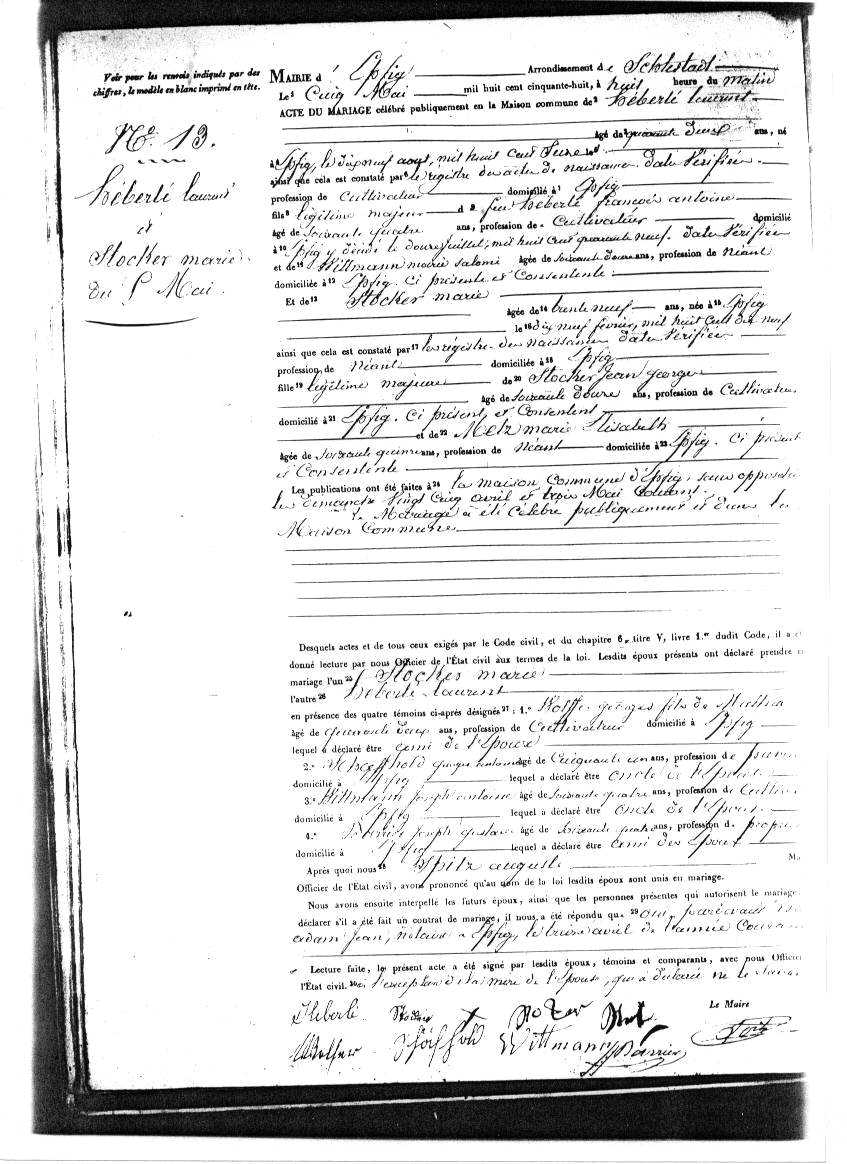 Voir pour les renvois indiqués par des
chiffres, le modèle en blanc imprimé en tête.
No. 13.
héberlé laurent
et
Stocker marie
du 5 Mai
MAIRIE d' Epfig Arrondissement de Schlestadt
Le Cinq Mai mil huit cent cinquante-huit, à huit heure du matin
ACTE DU MARIAGE célébré publiquement en la Maison commune de héberlé laurent
âgé de quarante deux ans, né
à Epfig, le dix neuf aout, mil huit cent Seize
ainsi que cela est constaté par le registre des actes de naissance, date Vérifiée
profession de Cultivateur domicilié à Epfig
fils légitime majeur d feu héberlé françois antoine
âgé de Soixante quatre ans, profession de Cultivateur domicilié
à Epfig y décédé le douze juillet, mil huit cent quarante neuf. date Vérifiée
et de Wittmann marie salomé âgée de soixante douze ans, profession de Néant
domiciliée à Epfig. Ci présente et Consentente
Et de Stocker marie
âgée de trente neuf ans, née à Epfig
le dix neuf février, mil huit cent dix neuf
ainsi que cela est constaté par le régistre des naissances date Vérifiée
profession de Néant domiciliée à Epfig
fille légitime majeure de Stocker Jean george
âgé de soixante douze ans, profession de Cultivateur
domicilié à Epfig. Ci présent, et Consentent
et de Metz marie Elisabeth
âgée de soixante quinze ans, profession de Néant domiciliée à Epfig. Ci présente
et Consentente
Les publications ont été faites à la maison Commune d'Epfig, sans opposition
les dimanche Vingt Cinq avril et Mai Courant.
Le Mariage a été célébré publiquement et dans la
Maison Commune
Desquels actes et de tous ceux exigés par le Code civil, et du chapitre 6, titre V, livre 1.er dudit Code, il a été
donné lecture par nous Officier de l'État civil aux termes de la loi. Lesdits époux présents ont déclaré prendre en
mariage l'un Stocker marie
l'autre héberlé laurent
en présence des quatre témoins ci-après désignés : 1.° georges fils de
âgé de quarante deux ans, profession de Cultivateur domicilié à Epfig
lequel a déclaré être ami de l'Epoux
2.° âgé de Cinquante un ans, profession de
domicilié à Epfig lequel a déclaré être oncle de
3.° Wittmann Joseph antoine âgé de soixante quatre ans, profession de Cultiv
domicilié à Epfig lequel a déclaré être Oncle de l'Epoux
4.° Joseph gustave âgé de soixante quatre ans, profession de propri
domicilié à Epfig lequel a déclaré être ami des Epoux
Après quoi nous Spitz auguste M
Officier de l'État civil, avons prononcé qu'au nom de la loi lesdits époux sont unis en mariage.
Nous avons ensuite interpellé les futurs époux, ainsi que les personnes présentes qui autorisent le mariage
déclarer s'il a été fait un contrat de mariage, il nous a été répondu que Oui, pardevant
adam Jean, Notaire à Epfig, le treize avril de l'année Courante
Lecture faite, le présent acte a été signé par lesdits époux, témoins et comparants, avec nous Officier
l'État civil. à l'exception de la mere de l'Epouse, qui a déclaré ne le savoir
Le Maire
Heberlé Stocker Stocker
Wolffer Wittmann Spitz